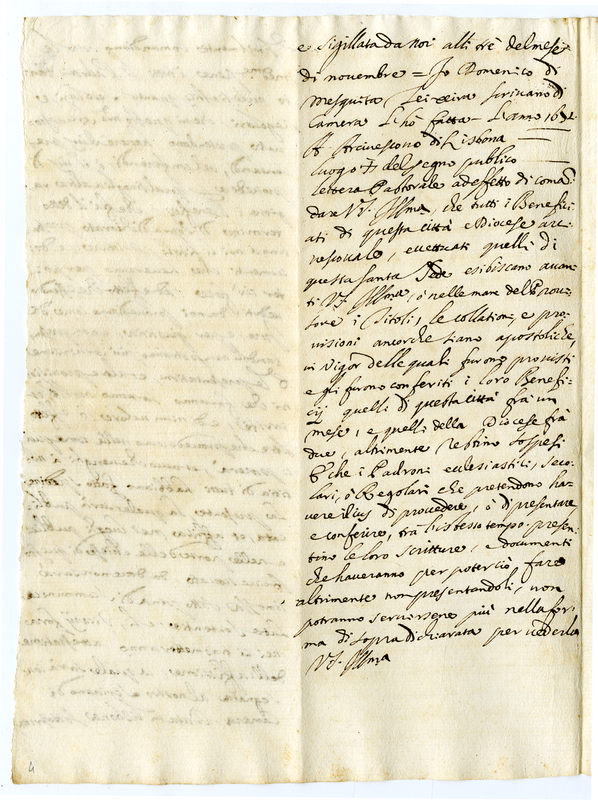 e Sigillata da noi alli tre del mese
di novembre = Jo Domenico di
Mesquita Teixeira Scrivano di
Camera l'hò fatta l'anno 16
A. Arcivescovo di Lisbona
luogo † del segno publico
lettera Pastorale ad effetto di coman
dare V. S. Illma, che tutti i Benefici
ati di questa città e Diocese arci
vescovale, eccettuati quelli di
questa santa Sede esibiscano avan
ti V. S. Illma, ò nelle mane del Provi
sore i Titoli, le collationi, e pro
visioni ancorche siano apostoliche,
in vigor delle quali furono provisti
e gli furono conferiti i loro Benefi
cij quelli di questa città frà un
mese, e quelli della Diocese frà
due, altrimente restino sospesi
E che i Padroni ecclesiastici, seco
lari, ò Regolari che pretendono ha
vere il ius di provedere, ò di presentare
e conferire, frà l'istesso tempo presen
tino le loro scritture, e documenti
che haveranno per poterlo fare
altrimente non presentandoli, non
potranno servirsene più nella for
ma di sopra dichiarata per vederla
V. S. Illma
4